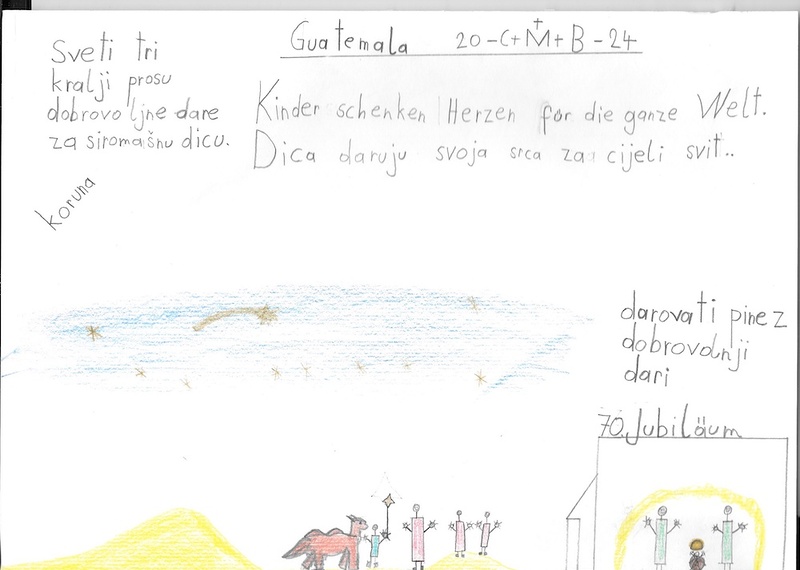 Sveti tri
kralji prosu
dobrovoljne dare
za siromašnu dicu.
koruna
Guatemala 20-C+M+B-24
Kinder schenken Herzen für die ganze Welt.
Dica daruju svoja srca za cijeli svit..
darovati pinez
dobrovolnji
dari
70. Jubiläum